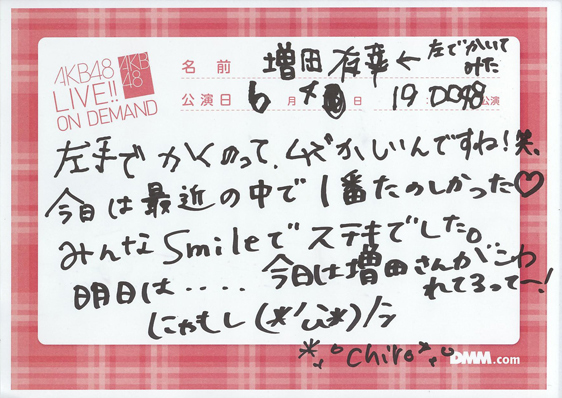 AKB48
LIVE!!
ON DEMAND
AKB
48
名前 増田有華 ← 左でかいて
みた
公演日 6月4日 19:00 公演
左手でかくのって、ムズかしいんですね!笑、
今日は最近の中で1番たのしかった♡
みんなSmileでステキでした。
明日は‥‥ 今日は増田さんがこわ
れてるって〜!
にゃもし(*'ω'*)/シ
*。°chiro*。°
DMM.com